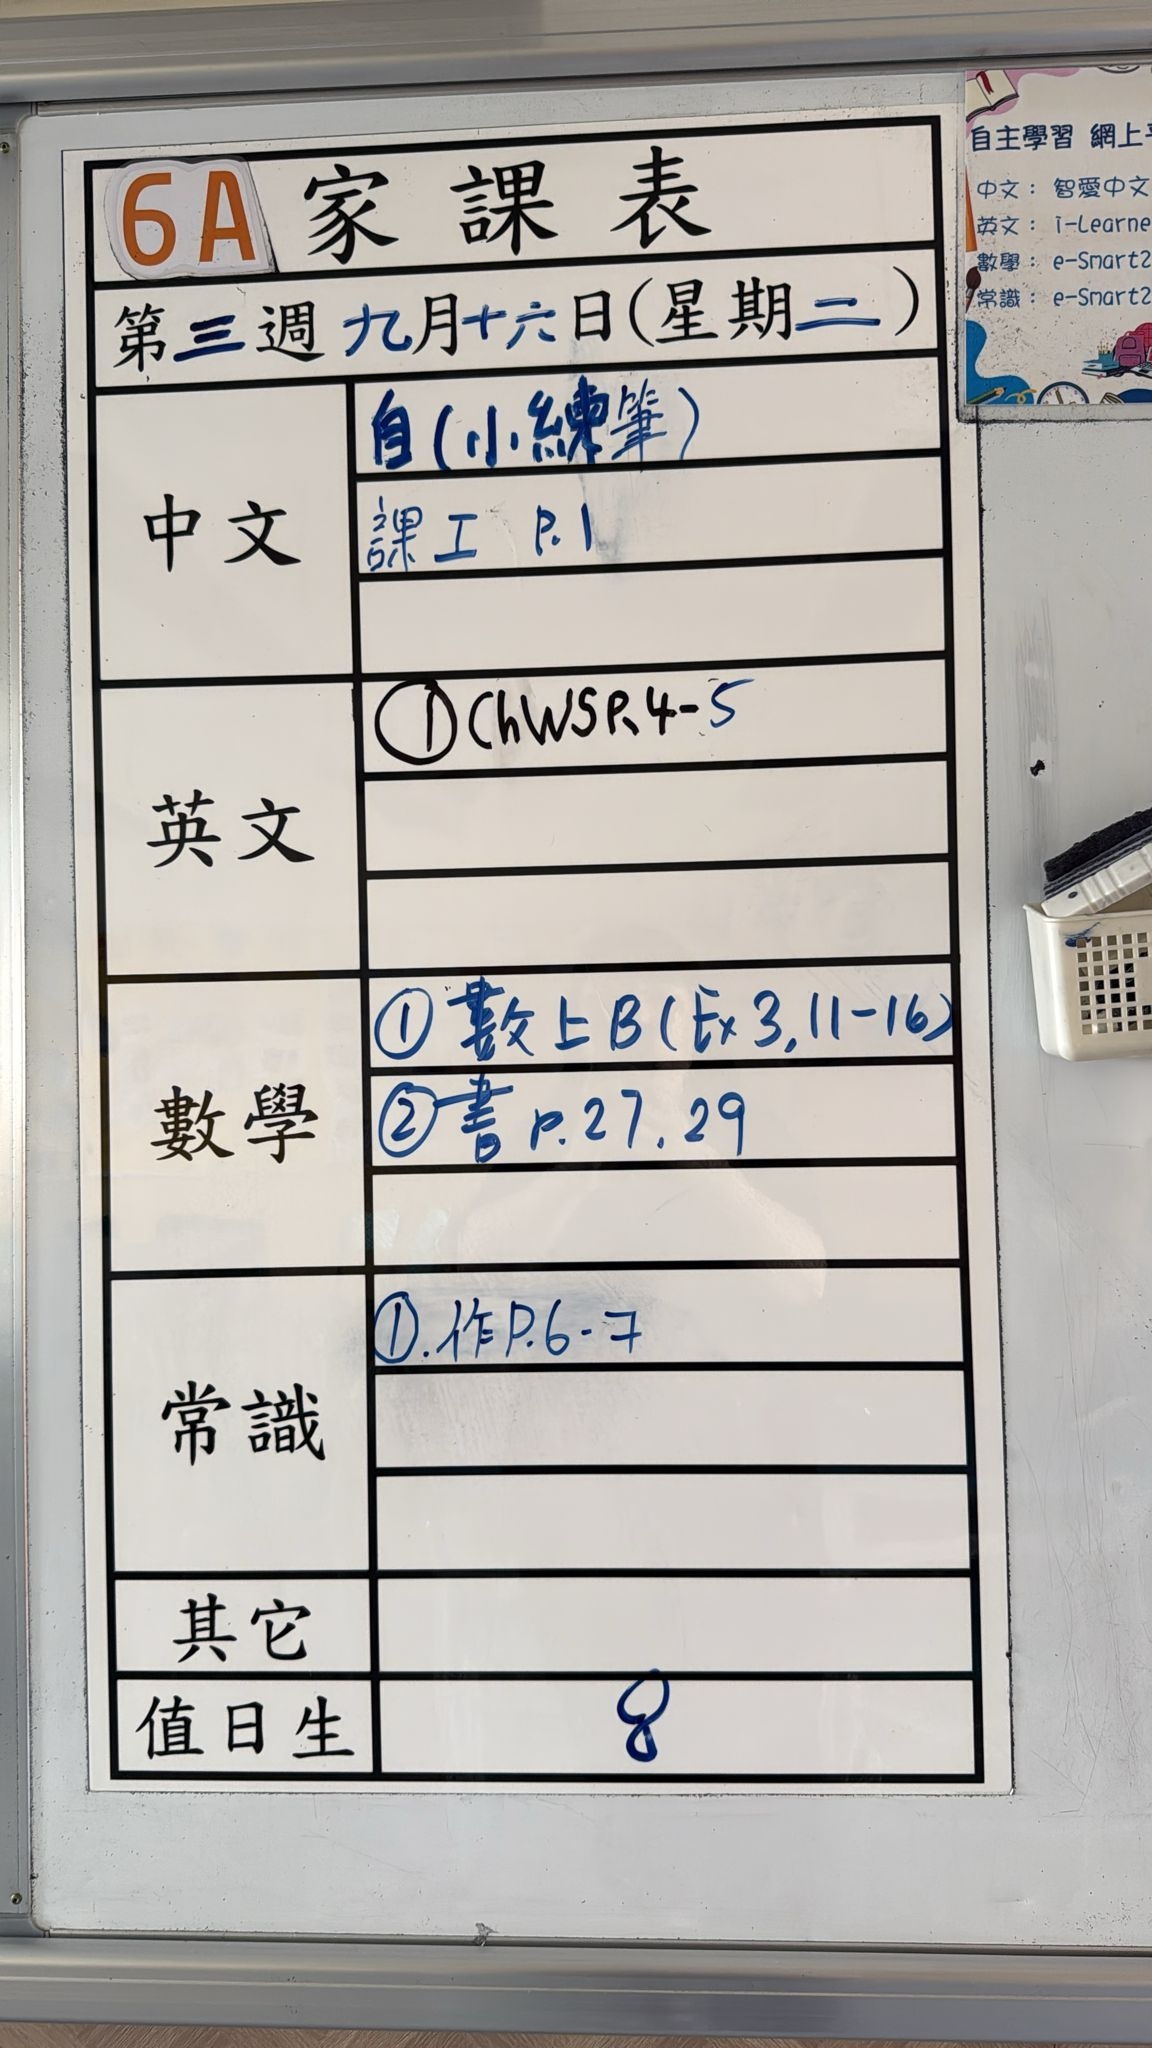 6A 家課表
第三週 九月十六日(星期二)
中文
自(小練筆)
課工 P.1
英文
① ChWS P.4-5
數學
① 數上B(Ex 3, 11-16)
② 書 P.27, 29
常識
①. 作P.6-7
其它
值日生
8
自主學習 網上
中文: 智愛中文
英文: i-Learne
數學: e-Smart2
常識: e-Smart2